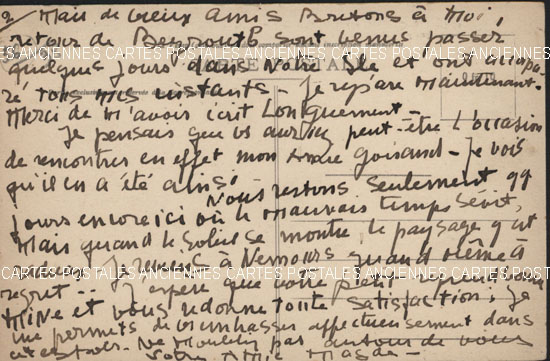 2/ Mais de vieux amis Bretons à moi,
retour de Beyrouth sont venus passer
CARTES POSTALES ANCIENNES CARTES POSTALES ANCIENNES CARTES POSTALES ANCIENNES
quelques jours dans notre Ile et ont empa-
ré tous mes instants - Je répare maintenant.
Merci de m'avoir écrit longuement -
Je pensais que vs auriez peut-être l'occasion
de rencontrer en effet mon André Goisand - Je vois
qu'il en a été ainsi.
Nous restons seulement qq
jours encore ici où le mauvais temps sévit,
Mais quand le soleil se montre, le paysage y est
CARTES POSTALES ANCIENNES CARTES POSTALES ANCIENNES CARTES POSTALES ANCIENNES
Je reviens à Nemours quand même à
regret. J'espère que votre petit reprend
mine et vous redonne toute satisfaction. Je
me permets de vs embrasser affectueusement dans
Ne m'oubliez pas autour de vous
Votre Amie Magda -